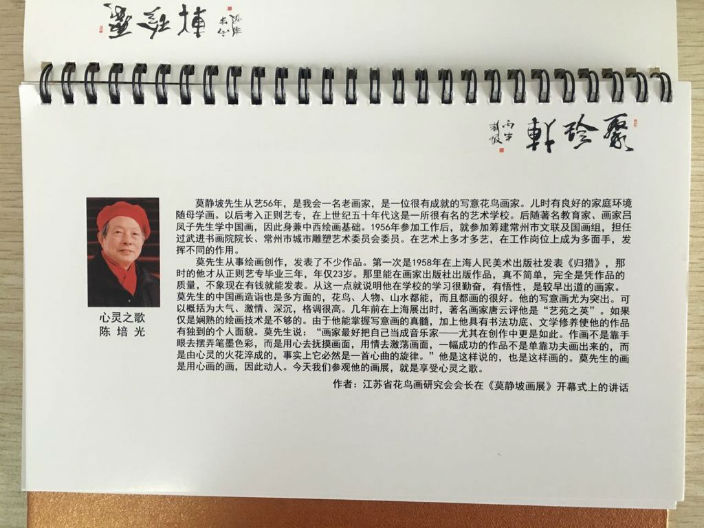 聚珍轩
丙申
莫静坡先生从艺56年，是我会一名老画家，是一位很有成就的写意花鸟画家。儿时有良好的家庭环境
随母学画。以后考入正则艺专，在上世纪五十年代这是一所很有名的艺术学校。后随著名教育家、画家吕
凤子先生学中国画，因此身兼中西绘画基础。1956年参加工作后，就参加筹建常州市文联及国画组，担任
过武进书画院院长、常州市城市雕塑艺术委员会委员。在艺术上多才多艺，在工作岗位上成为多面手，发
挥不同的作用。
莫先生从事绘画创作，发表了不少作品。第一次是1958年在上海人民美术出版社发表《归猎》，那
时的他才从正则艺专毕业三年，年仅23岁。那里能在画家出版社出版作品，真不简单，完全是凭作品的
质量，不象现在有钱就能发表。从这一点就说明他在学校的学习很勤奋，有悟性，是较早出道的画家。
莫先生的中国画造诣也是多方面的，花鸟、人物、山水都能，而且都画的很好。他的写意画尤为突出。可
以概括为大气、激情、深沉，格调很高。几年前在上海展出时，著名画家唐云评他是“艺苑之英”。如果
仅是娴熟的绘画技术是不够的。由于他能掌握写意画的真髓，加上他具有书法功底、文学修养使他的作品
有独到的个人面貌。莫先生说：“画家最好把自己当成音乐家——尤其在创作中更是如此。作画不是靠手
眼去摆弄笔墨色彩，而是用心去抚摸画面，用情去激荡画面，一幅成功的作品不是单靠功夫画出来的，而
是由心灵的火花淬成的，事实上它必然是一首心曲的旋律。”他是这样说的，也是这样画的。莫先生的画
是用心画的画，因此动人。今天我们参观他的画展，就是享受心灵之歌。
作者：江苏省花鸟画研究会会长在《莫静坡画展》开幕式上的讲话
心灵之歌
陈培光